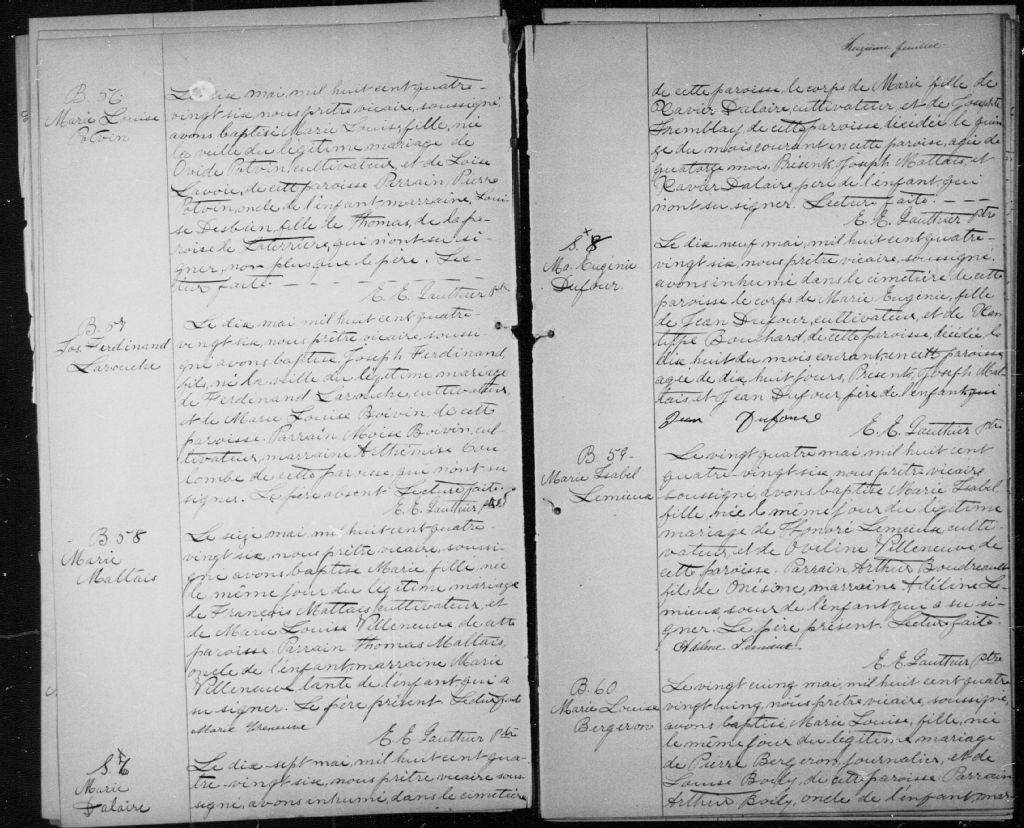 B. 56
Marie Louise
Potvin
Le dix mai, mil huit cent quatre-
vingt six, nous prêtre vicaire, soussigné
avons baptisé Marie Louise, fille, née
la veille du légitime mariage de
Ovide Potvin, cultivateur, et de Loise
Lavoie, de cette paroisse Parrain, Pierre
Potvin, oncle de l'enfant marraine, Loui-
se Desbien, fille de Thomas, de la pa-
roise de Laterrière, qui n'ont su si-
gner, non plus que le père. Lec-
ture faite
E. E. Gauthier ptre
B. 57
Jos. Ferdinand
Larouche
Le dix mai mil huit cent quatre-
vingt six, nous prêtre vicaire, soussi-
gné avons baptisé Joseph Ferdinand,
fils, né la veille du légitime mariage
de Ferdinand Larouche, cultivateur,
et de Marie Louise Boivin, de cette
paroisse. Parrain Moise Boivin, cul-
tivateur, marraine Arthémise Cou-
lombe de cette paroisse, qui n'ont su
signer. Le père absent Lecture faite.
E. E. Gauthier ptre
B 58
Marie
Maltais
Le seize mai mil huit cent quatre-
vingt six, nous prêtre vicaire, soussi-
gné avons baptisé Marie fille née
le même jour du légitime mariage
de François Maltais, cultivateur, et
de Marie Louise Villeneuve, de cette
paroisse. Parrain Thomas Maltais,
oncle de l'enfant, marraine Marie
Villeneuve tante de l'enfant qui a
su signer. Le père présent Lecture faite
Marie Vileneuve
E. E. Gauthier ptre
S. 7
Marie
Dalaire
Le dix-sept mai, mil huit cent qua-
tre-vingt six, nous prêtre vicaire sous-
signé, avons inhumé, dans le cimetière
Huzième feuillet
de cette paroisse, le corps de Marie fille de
Xavier Dalaire, cultivateur, et de Josephte
Tremblay, de cette paroisse, décédée le quin-
ze du mois courant en cette paroise, agée de
quatorze mois. Présents, Joseph Maltais, et
Xavier Dalaire, père de l'enfant qui
n'ont su signer. Lecture faite.
E. E. Gauthier ptre
S. 8
Ma. Eugénie
Dufour.
Le dix-neuf mai, mil huit cent quatre-
vingt six, nous prêtre vicaire, soussigné
avons inhumé dans le cimetière de cette
paroisse le corps de Marie Eugénie, fille
de Jean Dufour, cultivateur, et de Xan-
tippe Bouchard, de cette paroisse, décédée le
dix huit du mois courant en cette paroisse
agée de dix huit jours, Présents, Joseph Mal-
tais, et Jean Dufour, père de l'enfant, qui
Jean Dufour
E. E. Gauthier ptre
B. 59-
Marie Isabel
Lemieux
Le vingt quatre mai, mil huit cent
quatre-vingt six, nous prêtre vicaire
soussigné, avons baptisé Marie Isabel,
fille, née le même jour du légitime
mariage de Honoré Lemieux, culti-
vateur, et de Oveline Villeneuve, de
cette paroisse. Parrain Arthur Boudreault
fils de Onésime, marraine Adéline Le-
mieux soeur de l'enfant qui a su si-
gner. Le père présent. Lecture faite
Adéline Lemieux
E. E. Gauthier ptre
B. 60
Marie Louise
Bergeron
Le vingt cinq mai, mil huit cent quatre
vingt cinq, nous prêtre vicaire, soussigné
avons baptisé Marie Louise, fille, née
le même jour du légitime mariage
de Pierre Bergeron, journalier, et de
Louise Boily, de cette paroisse Parrain
Arthur Boily, oncle de l'enfant, mar-